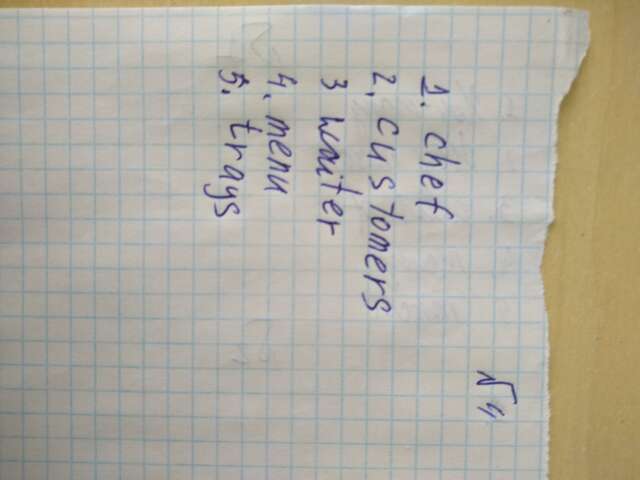 √4
1. chef
2. customers
3 waiter
4. menu
5. trays